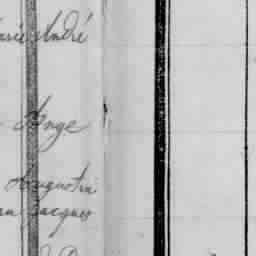 André
Ange
Augustin
Jacques